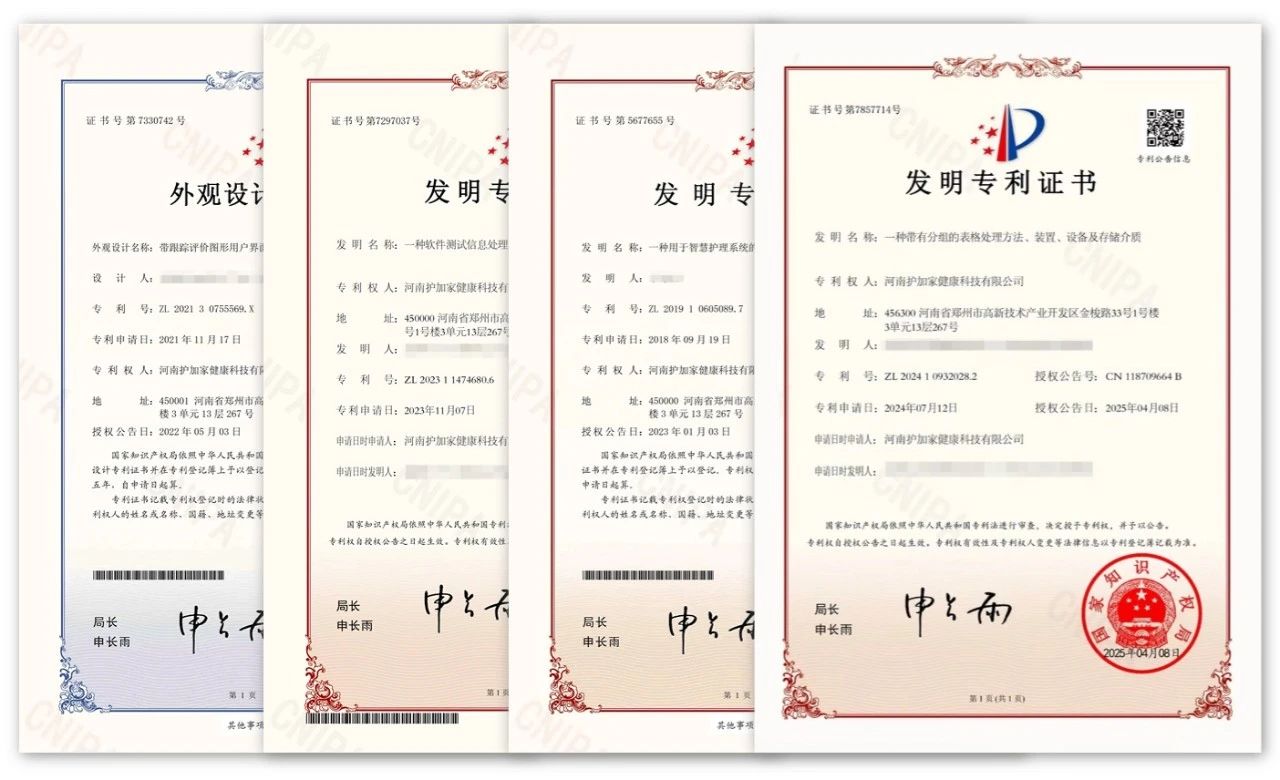 证书号第7330742号
外观设计
外观设计名称：带跟踪评价图形用户界面
设 计 人：
专 利 号：ZL 2021 3 0755569.X
专利申请日：2021年11月17日
专 利 权 人：河南护加家健康科技有限
地 址：450001 河南省郑州市高
楼3单元13层267号
授权公告日：2022年05月03日
国家知识产权局依照中华人民共和国
设计专利证书并在专利登记簿上予以登记
五年，自申请日起算。
专利证书记载专利权登记时的法律状
利权人的姓名或名称、国籍、地址变更等
局长
申长雨
第 1 页
其他事项
证书号第7297037号
发明专
发 明 名 称：一种软件测试信息处理
专 利 权 人：河南护加家健康科技有
地 址：450000 河南省郑州市高
号1号楼3单元13层267号
发 明 人：
专 利 号：ZL 2023 1 1474680.6
专利申请日：2023年11月07日
申请日时申请人：河南护加家健康科技有
申请日时发明人：
国家知识产权局依照中华人民共和国专利法
专利权自授权公告之日起生效。专利权有效性
局长
申长雨
第1页
证书号第5677655号
发明专
发 明 名 称：一种用于智慧护理系统的
发 明 人：
专 利 号：ZL 2019 1 0605089.7
专利申请日：2018年09月19日
专 利 权 人：河南护加家健康科技有限
地 址：450000 河南省郑州市高
楼3单元13层267号
授权公告日：2023年01月03日
国家知识产权局依照中华人民共和
证书并在专利登记簿上予以登记。专利权
申请日起算。
专利证书记载专利权登记时的法律状
利权人的姓名或名称、国籍、地址变更等
局长
申长雨
第 1 页
其他事项
证书号第7857714号
专利公告信息
发明专利证书
发 明 名 称：一种带有分组的表格处理方法、装置、设备及存储介质
专 利 权 人：河南护加家健康科技有限公司
地 址：456300 河南省郑州市高新技术产业开发区金梭路33号1号楼
3单元13层267号
发 明 人：
专 利 号：ZL 2024 1 0932028.2 授权公告号：CN 118709664 B
专利申请日：2024年07月12日 授权公告日：2025年04月08日
申请日时申请人：河南护加家健康科技有限公司
申请日时发明人：
国家知识产权局依照中华人民共和国专利法进行审查，决定授予专利权，并予以公告。
专利权自授权公告之日起生效。专利权有效性及专利权人变更等法律信息以专利登记簿记载为准。
局长
申长雨
国家知识产权局
2025年04月08日
第1页(共1页)
CNIPA